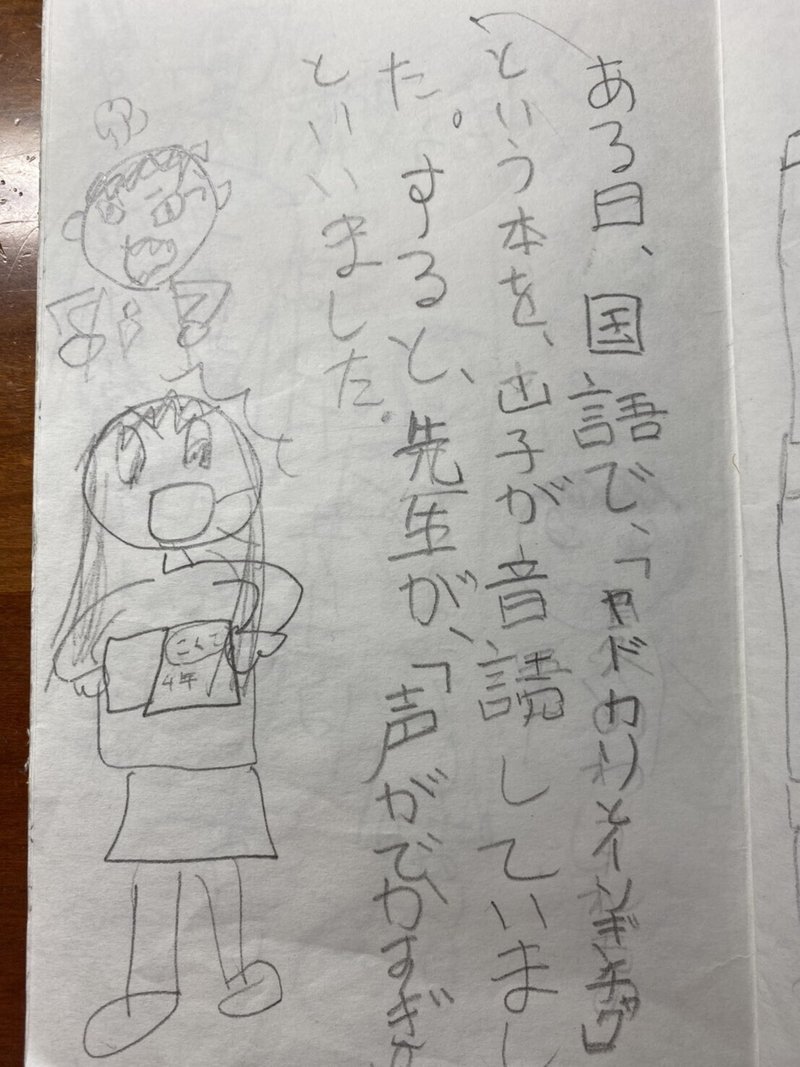 ある日、国語で、「ヤドカリとイソギンチャク」
という本を、出子が音読していまし
た。すると、先生が、「声がでかすぎ
といいました。
こくご
4年